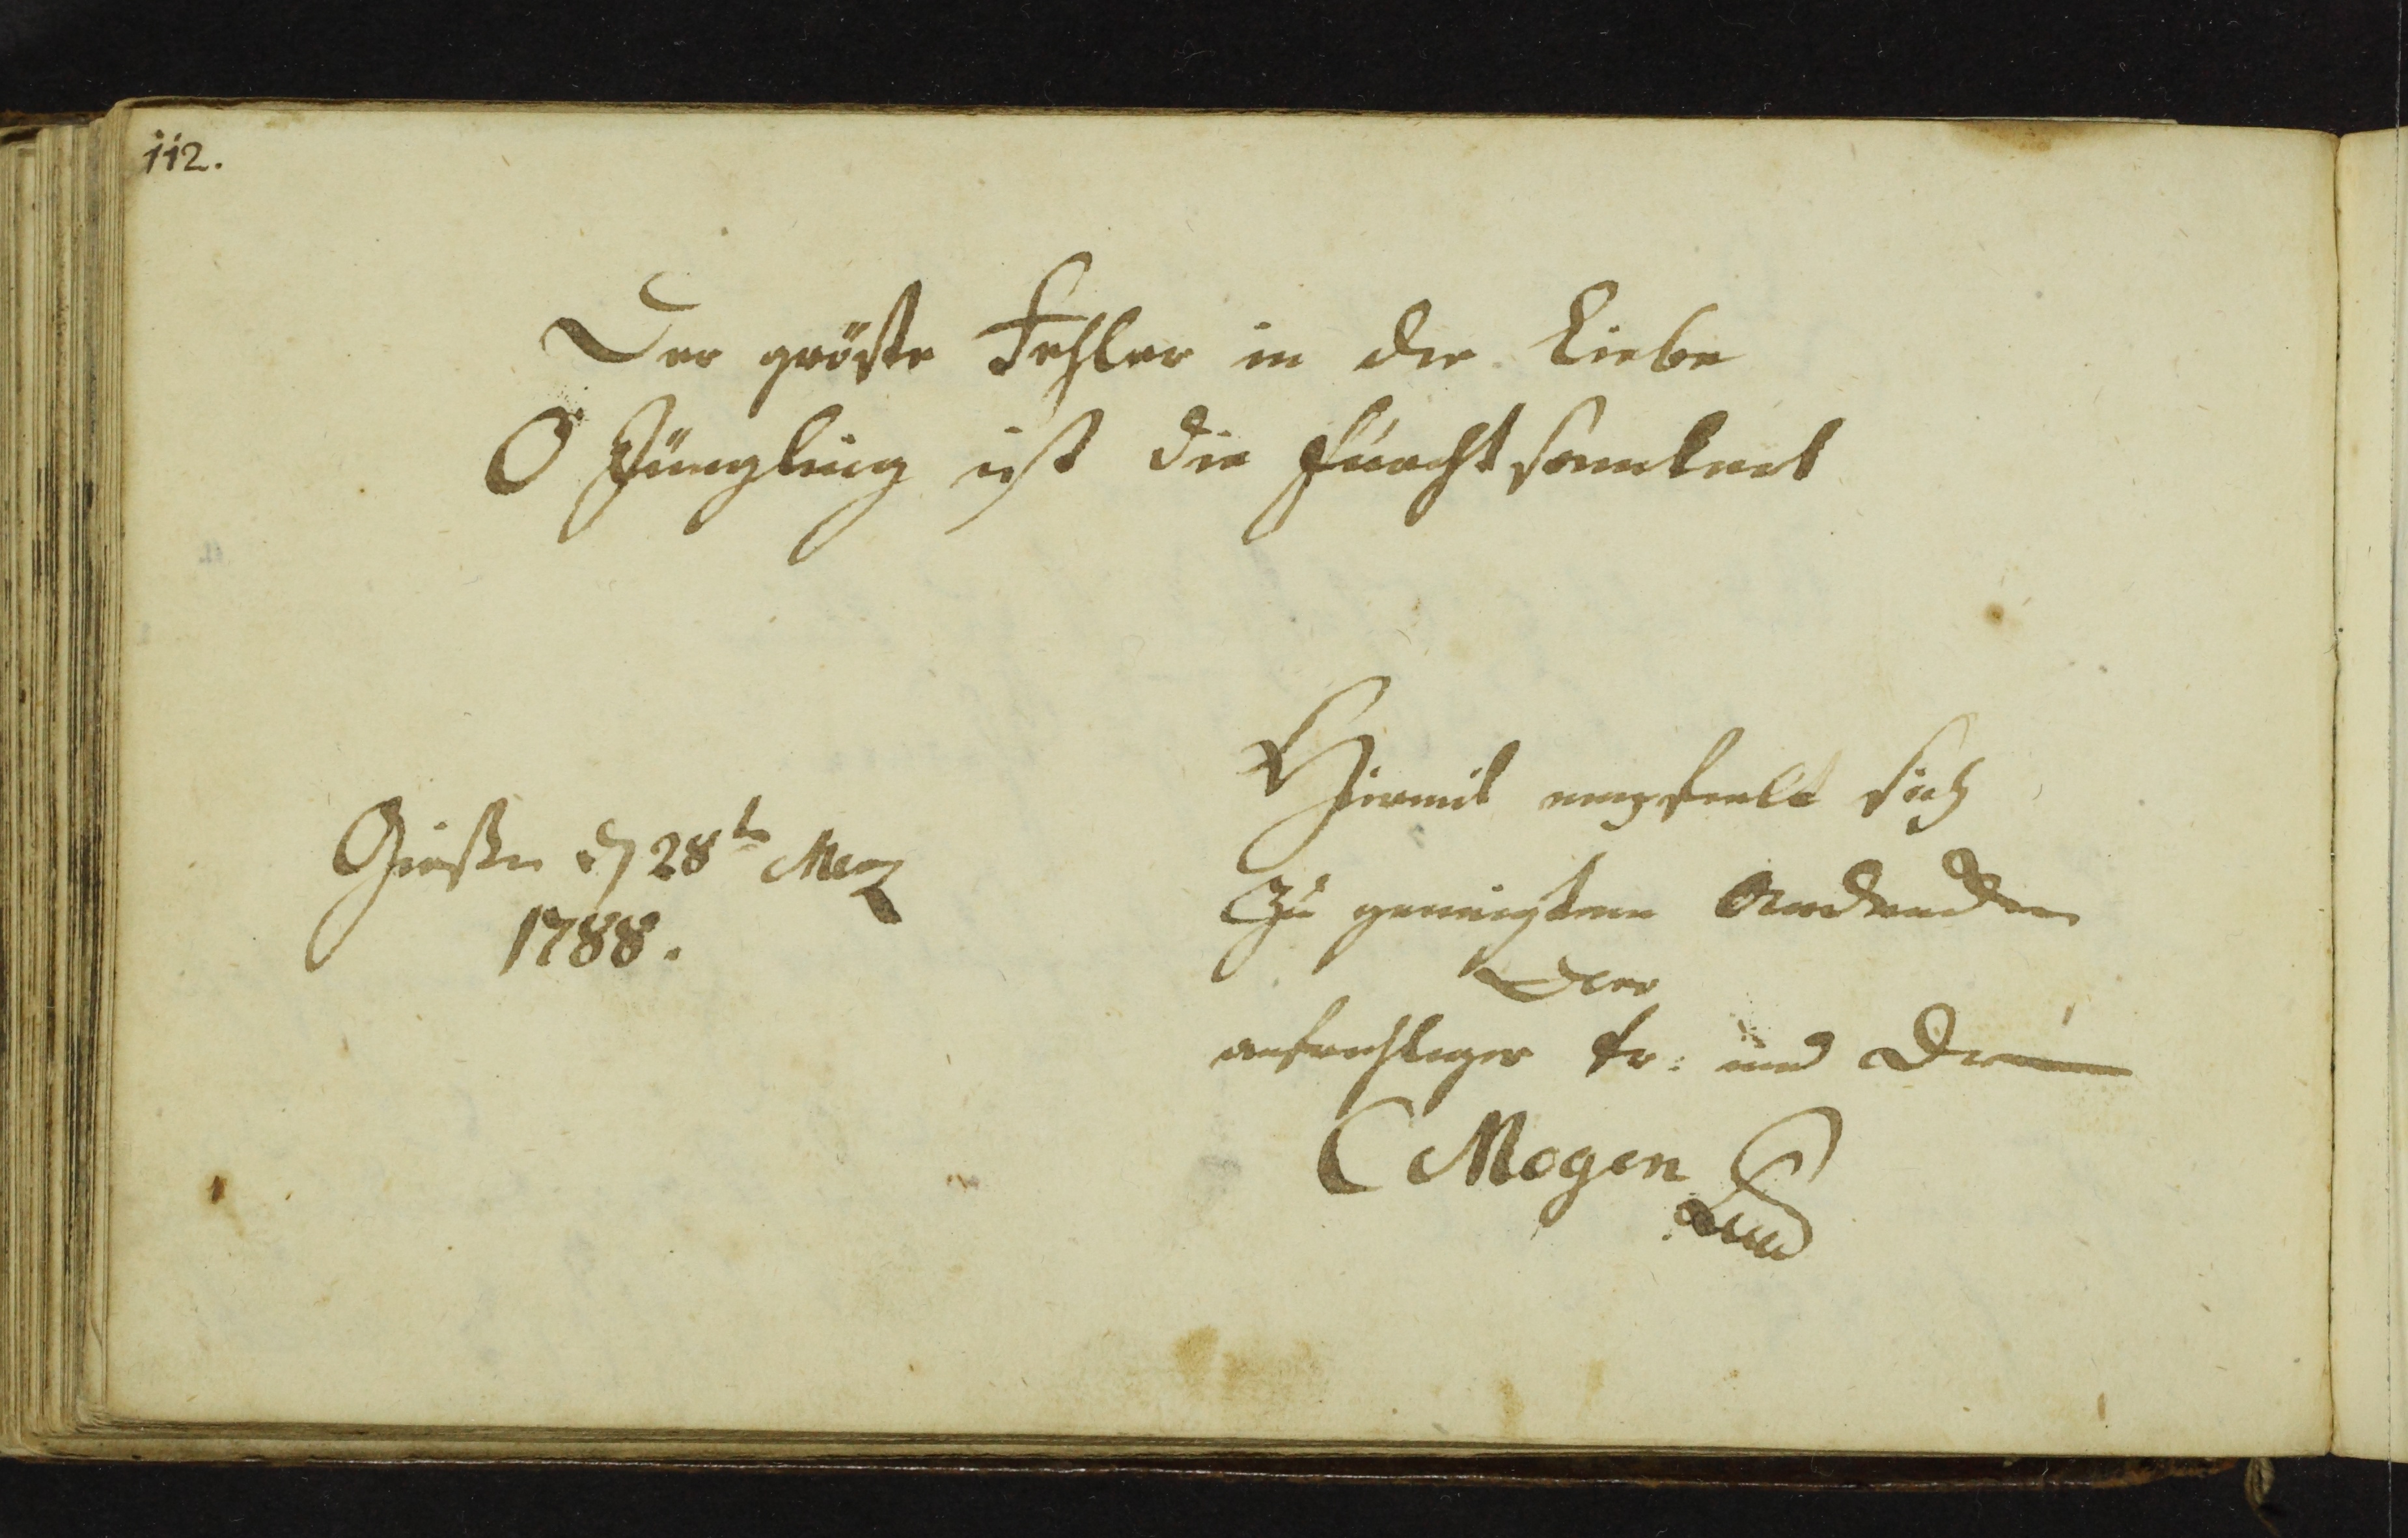 112.
Der gröste Fehler in der Liebe
O Jüngling ist die Furchtsamkeit
Giesen d 28t Merz
1788.
Hiermit empfeelt sich
Zu geneigtem Andencken
Der
aufrichtiger Fr: und
C Mogen